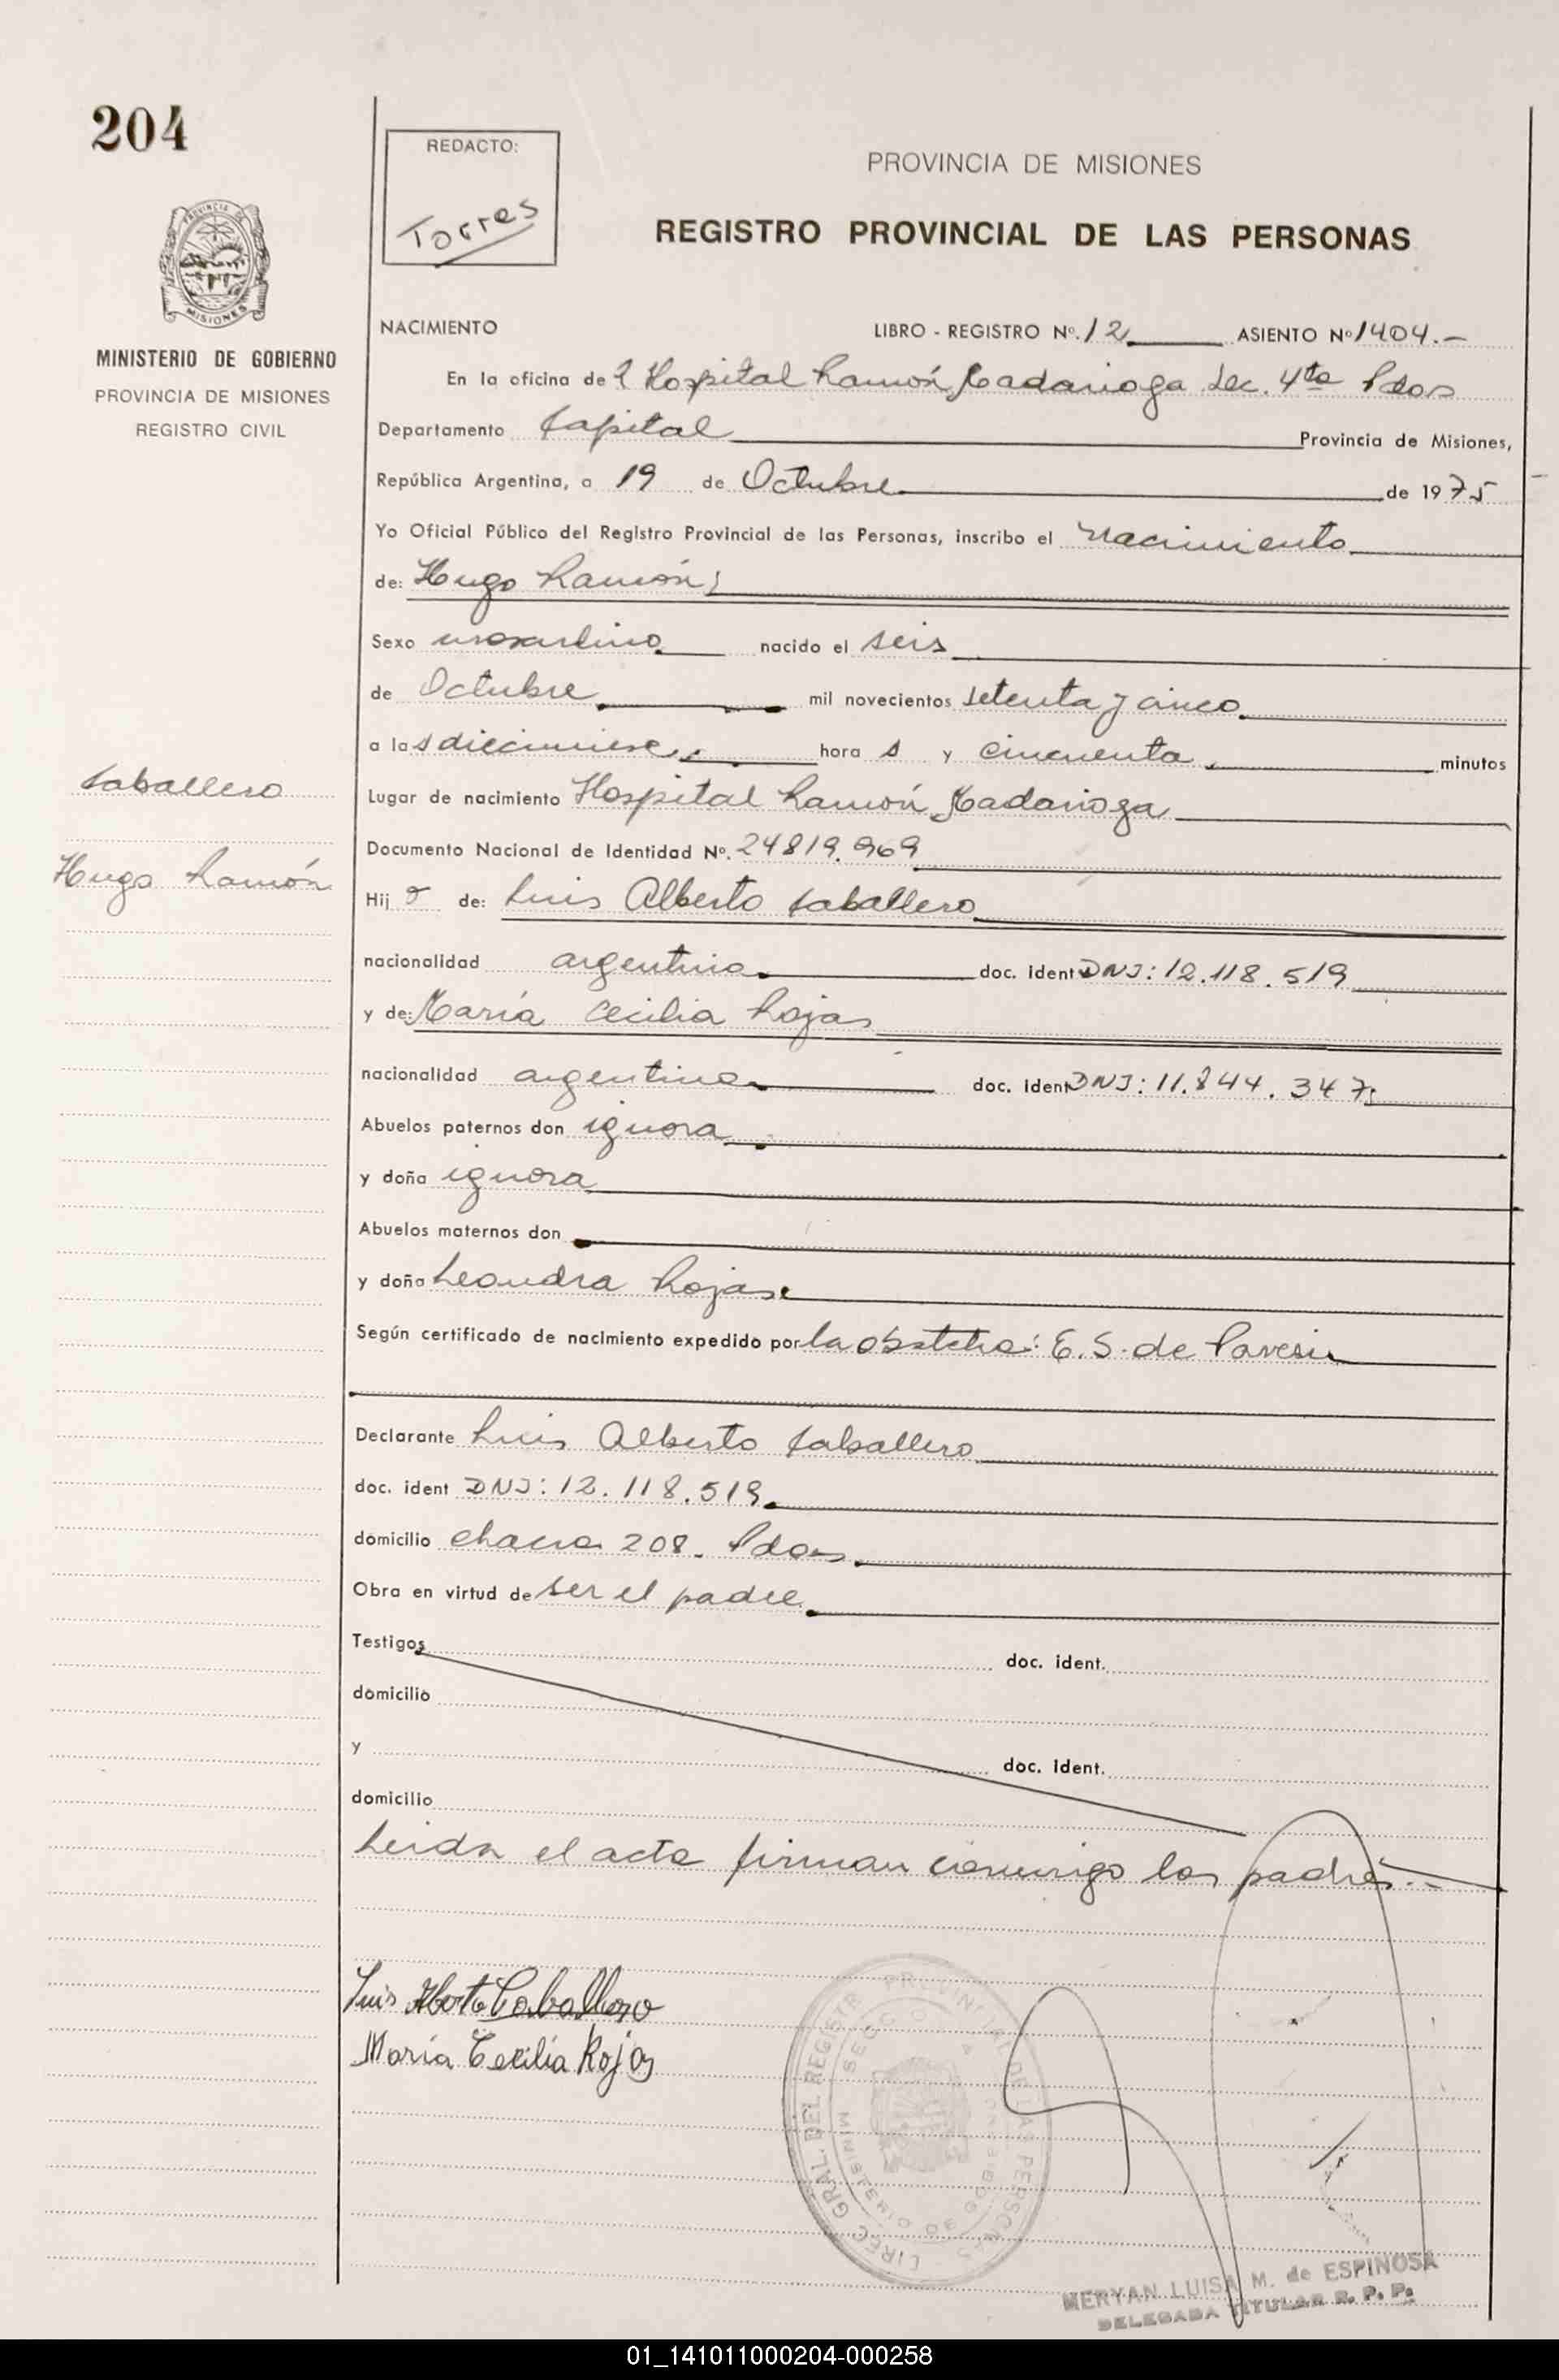 204
REDACTO:
Torres
PROVINCIA DE MISIONES
REGISTRO PROVINCIAL DE LAS PERSONAS
MINISTERIO DE GOBIERNO
PROVINCIA DE MISIONES
REGISTRO CIVIL
NACIMIENTO LIBRO - REGISTRO Nº. 12 ASIENTO Nº 1404.-
En la oficina del Hospital Ramón Madariaga Sec. 4ta Pdas
Departamento Capital Provincia de Misiones,
República Argentina, a 19 de Octubre de 1975
Yo Oficial Público del Registro Provincial de las Personas, inscribo el nacimiento
de: Hugo Ramón
Sexo masculino nacido el seis
de Octubre mil novecientos setenta y cinco
a las diecinueve hora s y cincuenta minutos
Caballero
Lugar de nacimiento Hospital Ramón Madariaga
Documento Nacional de Identidad Nº. 24819.969
Hugo Ramón
Hij o de: Luis Alberto Caballero
nacionalidad argentina doc. ident DNI: 12.118.519
y de: María Cecilia Rojas
nacionalidad argentina doc. ident DNI: 11.844.347
Abuelos paternos don ignora
y doña ignora
Abuelos maternos don
y doña Leandra Rojas
Según certificado de nacimiento expedido por la obstetra: E.S. de
Declarante Luis Alberto Caballero
doc. ident DNI: 12.118.519
domicilio chacra 208. Pdas
Obra en virtud de ser el padre
Testigos doc. ident.
domicilio
y doc. ident.
domicilio
Leida el acta firman conmigo los padres.-
Luis Alberto Caballero
María Cecilia Rojas
DIREC. GRAL. DEL REGISTR PROVINCIAL DE LAS PERSONAS
MERYAN LUISA M. de ESPINOSA
DELEGADA TITULAR R. P. P.
01_141011000204-000258